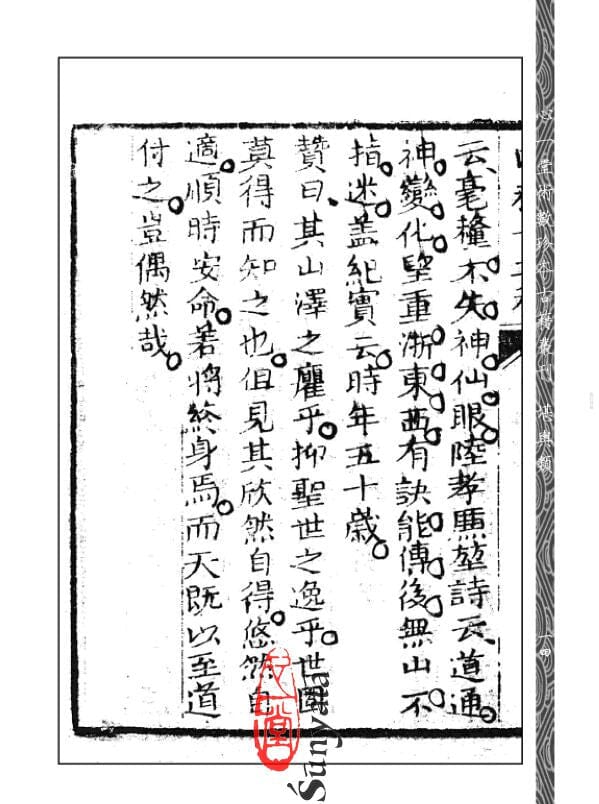 云毫釐不失神仙眼陸孝廉堃詩云道通
神變化堅重浙東西有訣能傳後無山不
指迷盖紀實云時年五十歲
贊曰其山澤之臞乎抑聖世之逸乎世固
莫得而知之也但見其欣然自得悠然自
適順時安命若將終身焉而天既以至道
付之豈偶然哉
心一堂術數珍本古籍叢刊 堪輿類
一四
心一堂
Śūnyatā